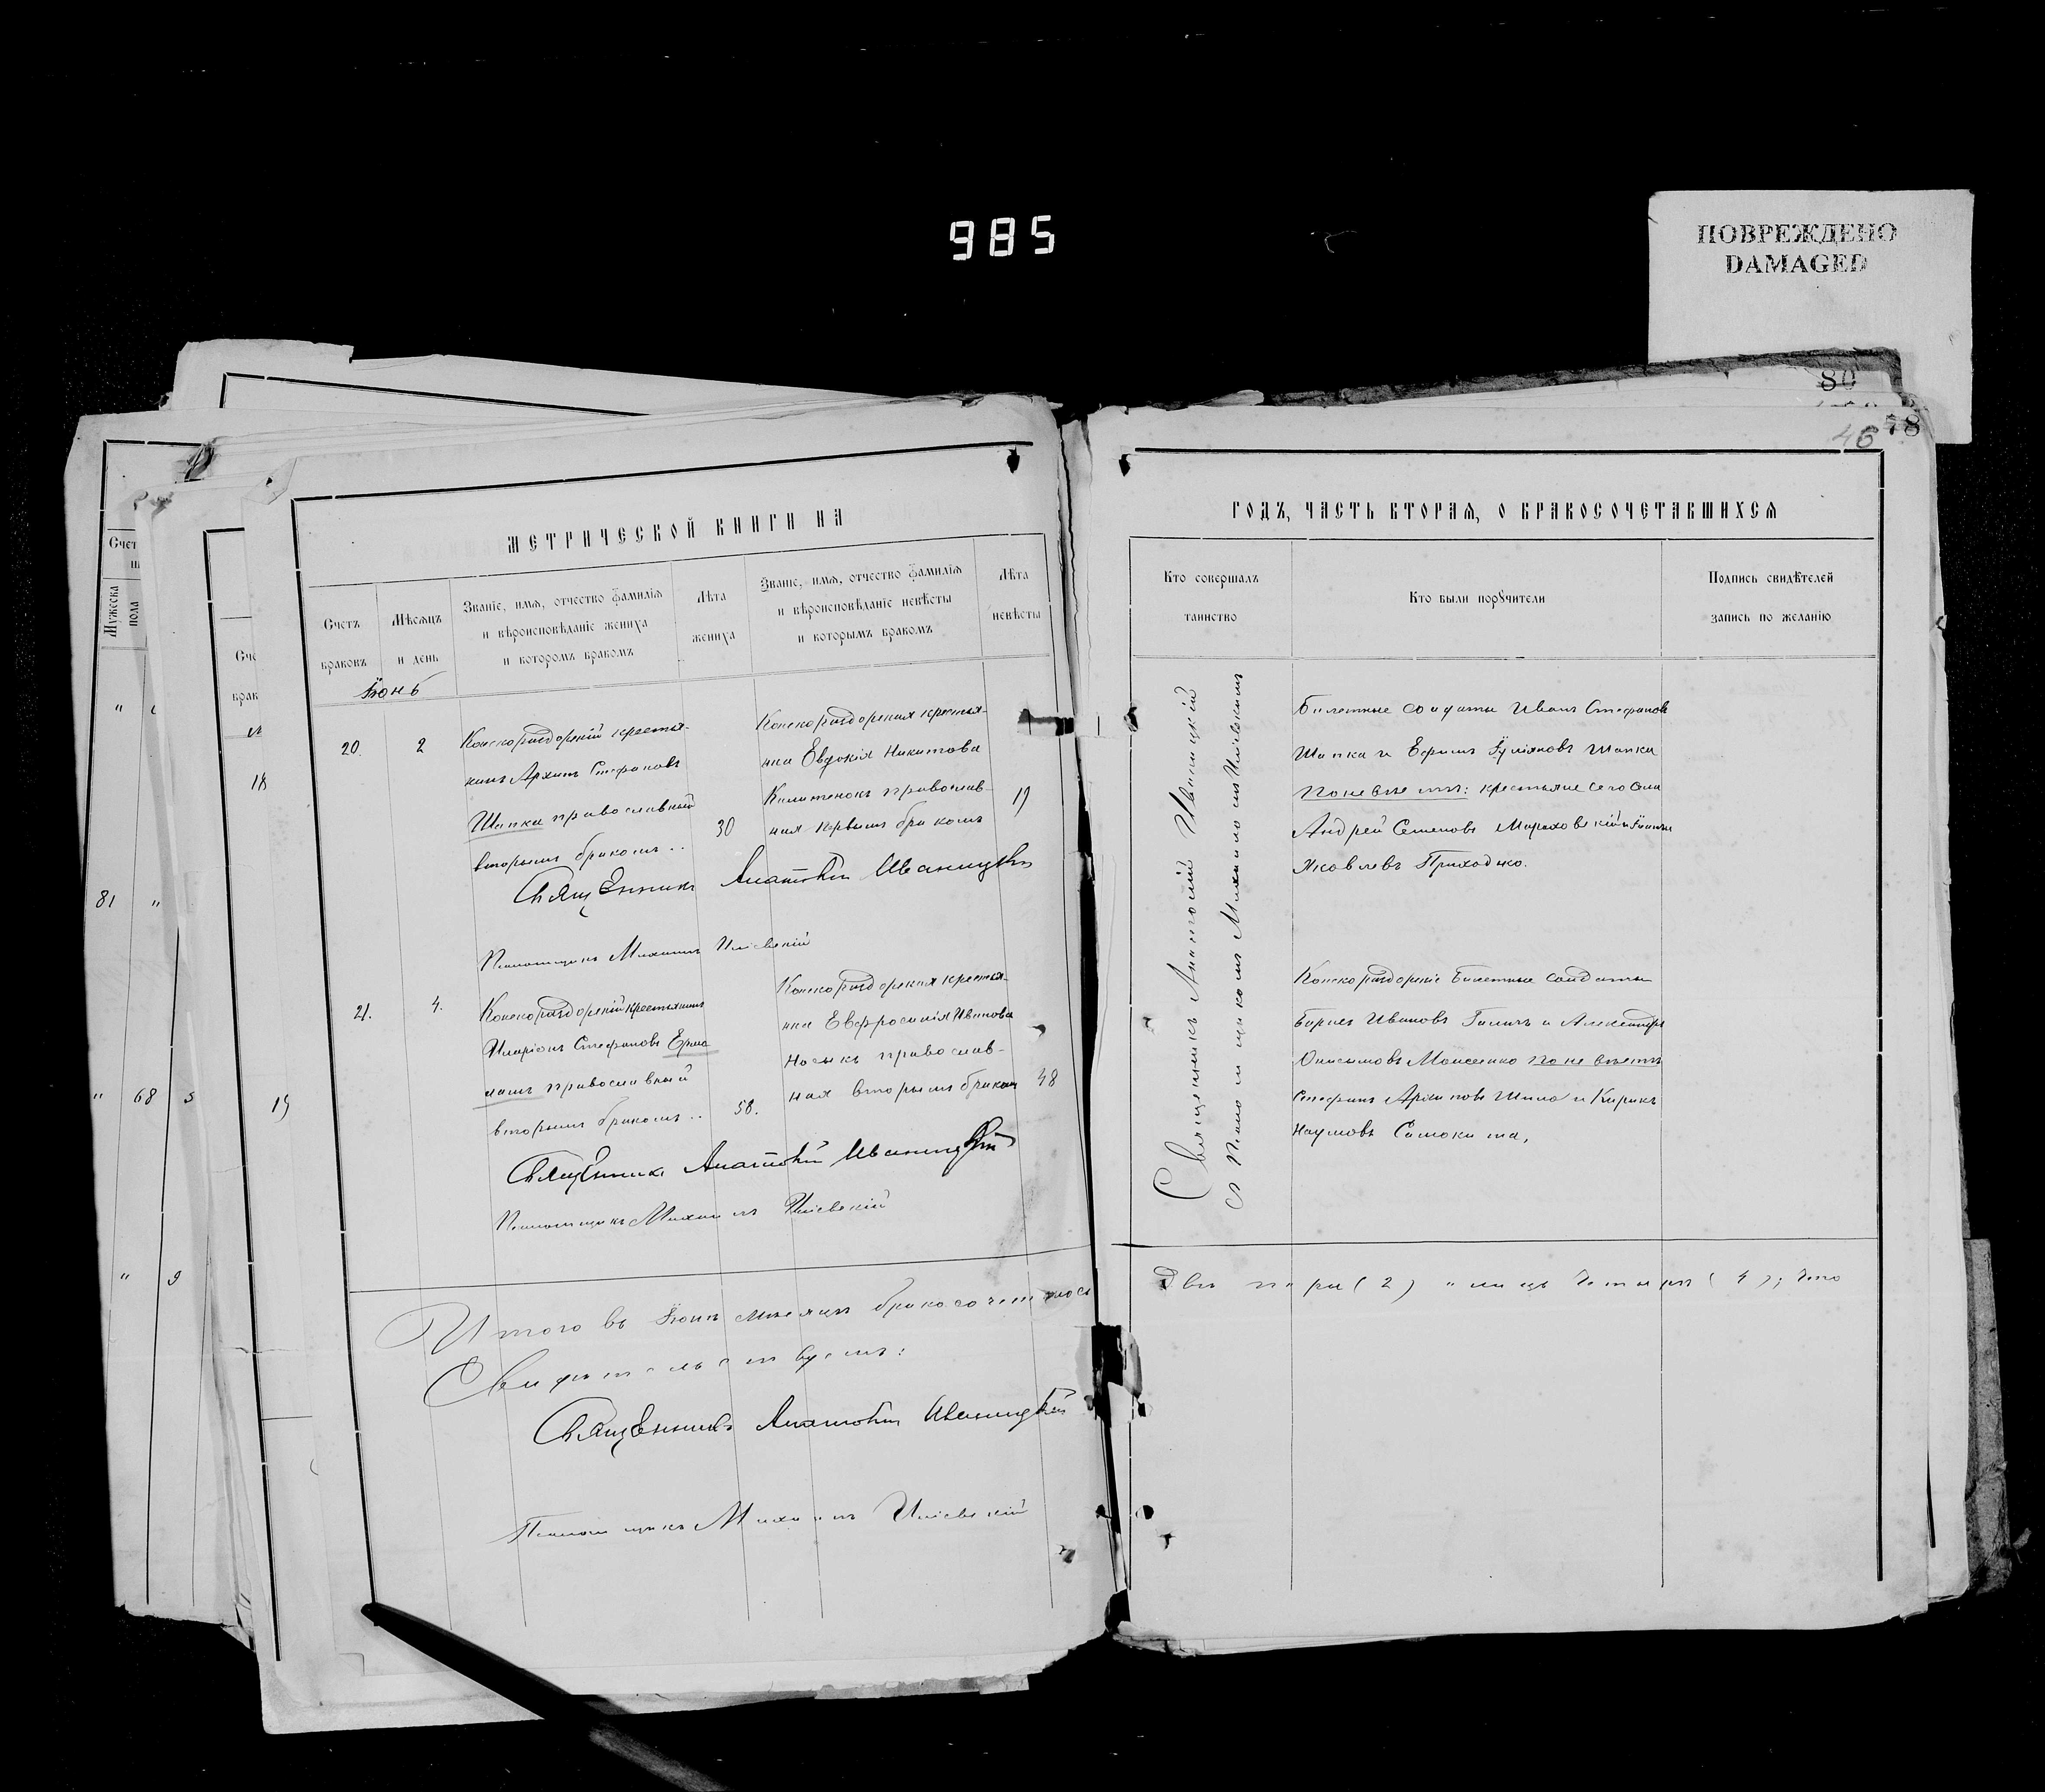 985
ПОВРЕЖДЕНО
DAMAGED
80
46 78
МЕТРИЧЕСКОЙ КНИГИ НА
Счетъ браковъ
Мѣсяцъ и день
Званіе, имя, отчество фамилія
и вѣроисповѣданіе жениха
и которомъ бракомъ
Лѣта
жениха
Званіе, имя, отчество фамилія
и вѣроисповѣданіе невѣсты
и которымъ бракомъ
Лѣта
невѣсты
Іюнь
20.
2
крестья-
нинъ Архипъ Стефановъ
Шапка православный
вторымъ бракомъ..
30
крестья-
нка Евдокія Никитова
православ-
ная первымъ бракомъ
19
Священникъ Анатолій Иваницкій
Псаломщикъ Михаилъ Иліевскій
21.
4.
крестьянинъ
Иларіонъ Стефановъ Ерма
лашъ православный
вторымъ бракомъ..
58.
крестья-
нка Евфросинія Иванова
Носыкъ православ-
ная вторымъ бракомъ
48
Священникъ Анатолій Иваницкій
Псаломщикъ Михаилъ Иліевскій
Итого въ Іюнѣ мѣсяцѣ бракосочеталось
Свидѣтельствуемъ:
Священникъ Анатолій Иваницкій
Псаломщикъ Михаилъ Иліевскій
ГОДЪ, ЧАСТЬ ВТОРАЯ, О БРАКОСОЧЕТАВШИХСЯ
Кто совершалъ
таинство
Кто были поручители
Подпись свидѣтелей
запись по желанію
Священникъ Анатолій Иваницкій
съ Псаломщикомъ Михаиломъ Иліевскимъ
Билетные солдаты Иванъ Стефановъ
Шапка и Ефимъ Шапка
По невѣстѣ: крестьяне сего села
Андрей Семеновъ
Яковлевъ Приходько.
Билетные солдаты
Борисъ Ивановъ и Александръ
Онисимовъ Моисеенко по невѣстѣ
Стефанъ Архиповъ Шило и Кирикъ
Наумовъ
Двѣ пары (2) а лицъ четыре (4); что
Мужеска
пола
81
68
18
19
9